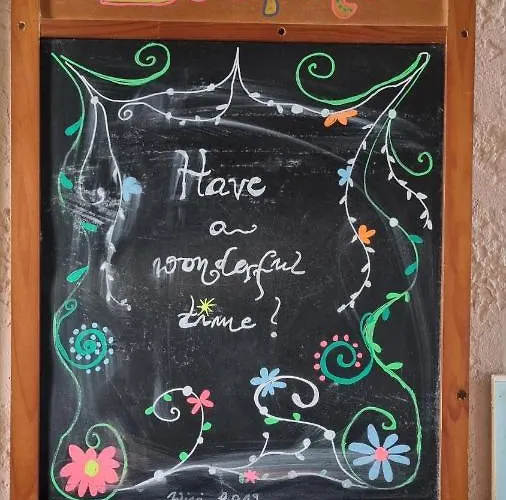 Have
a
wonderful
time!